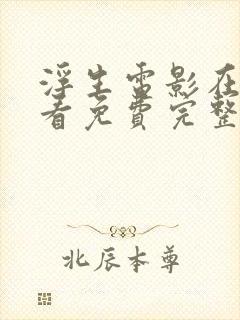 浮生雷影在
看免费完整
北辰本尊